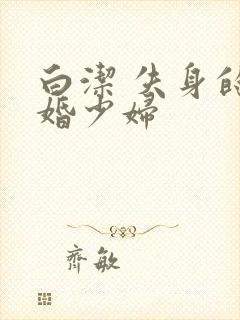 白潔 失身的
婚少婦
齊敏